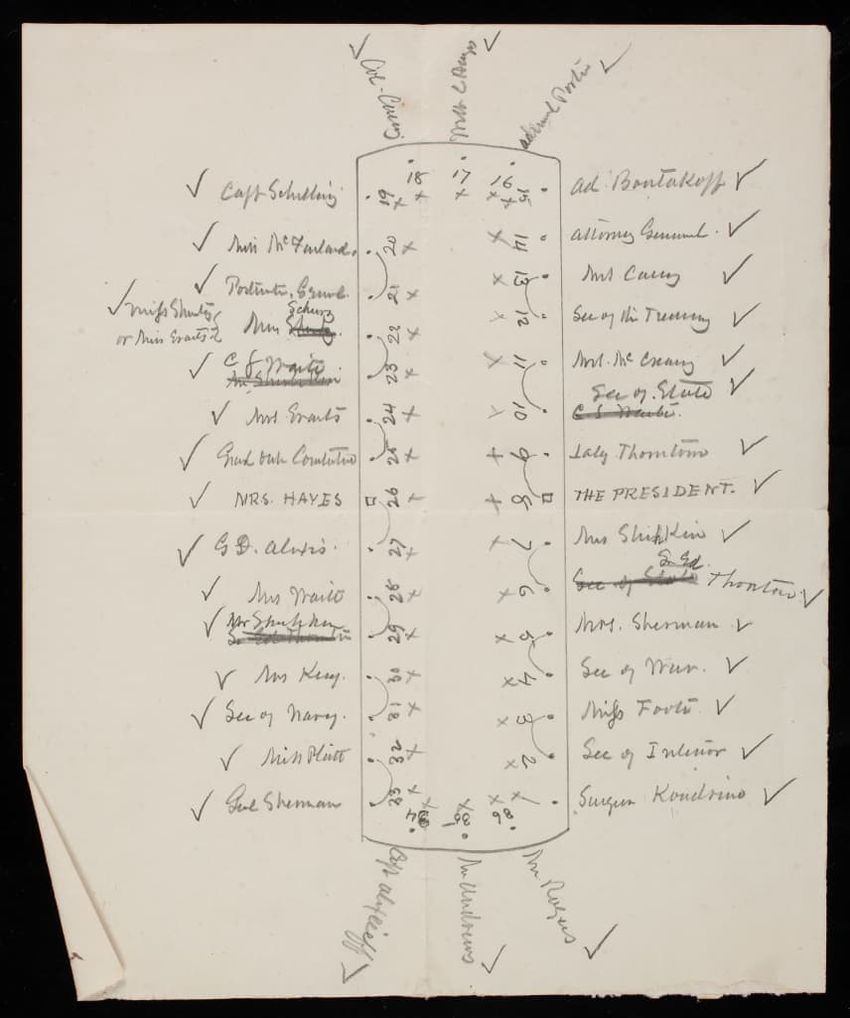 Col. Casey
Admiral Porter
18 17 16
Capt Schilling 19 15 Ad. Boutakoff
Miss McFarland. 20 14 Attorney General.
21 13 Mrs Casey
Miss Shurtz
or Miss Evarts
Schurz
Miss 22 12 Sec of the Treasury
C J Waite 23 11 Mrs. McCreary
Sec of State
Mrs Evarts 24 10 C. J. Waite.
Grand Duke Constantine 25 9 Lady Thornton
MRS. HAYES 26 8 THE PRESIDENT.
G D. Alexis. 27 7 Mrs Shiskin
Sr Ed.
Mrs Waite 28 6 Sec of State Thornton
Mr Shishkin
Sr Ed Thornton 29 5 Mrs. Sherman
Mrs Key. 30 4 Sec of War.
Sec of Navy. 31 3 Miss Foote
Miss Platt 32 2 Sec of Interior
Genl Sherman 33 1 Surgeon Koudrino
34 35 36
Mr Andrews
Mr Rodgers